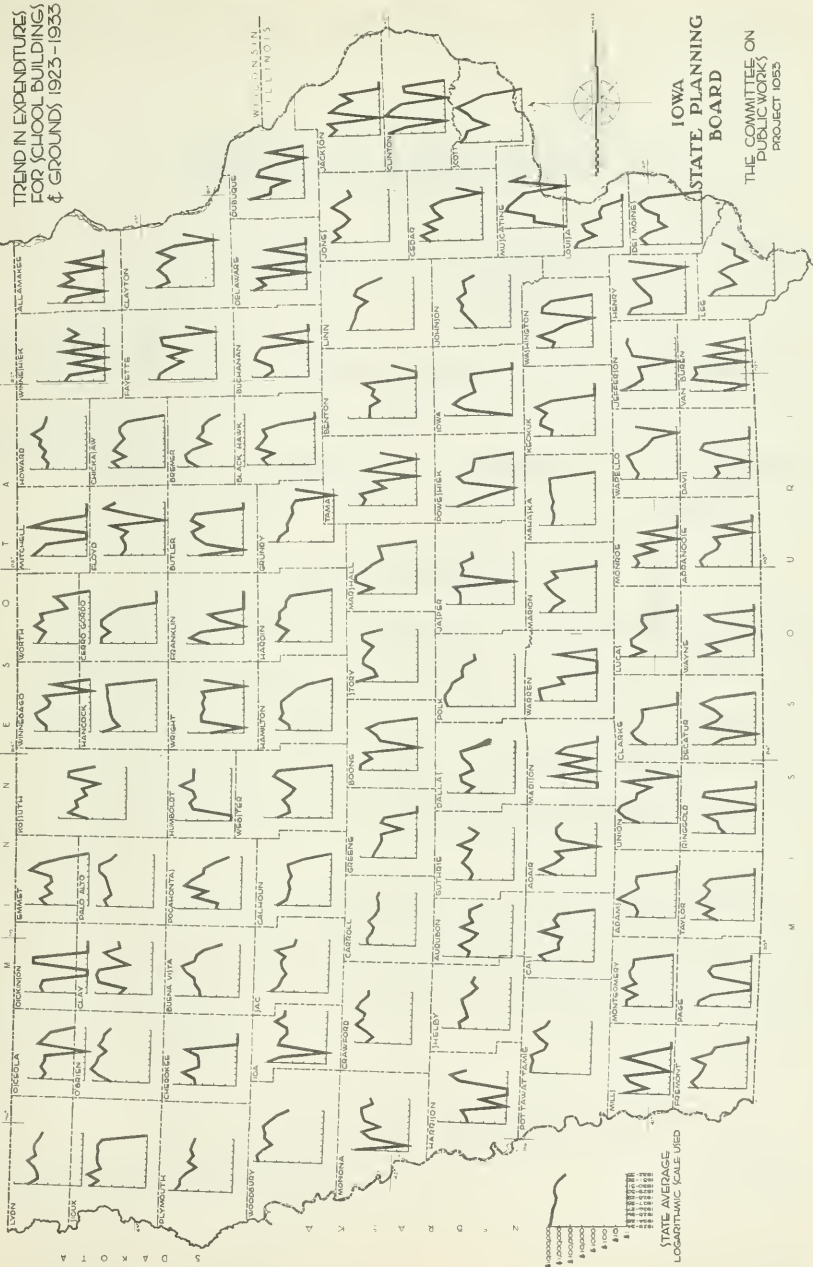 TREND IN EXPENDITURES
FOR SCHOOL BUILDINGS
& GROUNDS 1923-1933
MINNESOTA
WISCONSIN
ILLINOIS
LYON
OSCEOLA
DICKINSON
EMMET
KOSSUTH
WINNEBAGO
WORTH
MITCHELL
HOWARD
WINNESHIEK
ALLAMAKEE
SIOUX
O'BRIEN
CLAY
PALO ALTO
HANCOCK
CERRO GORDO
FLOYD
CHICKASAW
FAYETTE
CLAYTON
PLYMOUTH
CHEROKEE
BUENA VISTA
POCAHONTAS
HUMBOLDT
WRIGHT
FRANKLIN
BUTLER
BREMER
WOODBURY
IDA
SAC
CALHOUN
WEBSTER
HAMILTON
HARDIN
GRUNDY
BLACK HAWK
BUCHANAN
DELAWARE
DUBUQUE
MONONA
CRAWFORD
CARROLL
GREENE
BOONE
STORY
MARSHALL
TAMA
BENTON
LINN
JONES
JACKSON
CLINTON
HARRISON
SHELBY
AUDUBON
GUTHRIE
DALLAS
POLK
JASPER
POWESHIEK
IOWA
JOHNSON
CEDAR
SCOTT
MUSCATINE
POTTAWATTAMIE
CASS
ADAIR
MADISON
WARREN
MARION
MAHASKA
KEOKUK
WASHINGTON
LOUISA
MILLS
MONTGOMERY
ADAMS
UNION
CLARKE
LUCAS
MONROE
WAPELLO
JEFFERSON
HENRY
DES MOINES
FREMONT
PAGE
TAYLOR
RINGGOLD
DECATUR
WAYNE
APPANOOSE
DAVIS
VAN BUREN
LEE
MISSOURI
STATE AVERAGE
LOGARITHMIC SCALE USED
$1,000,000
$100,000
$10,000
$1000
$100
$10
$1
IOWA
STATE PLANNING
BOARD
THE COMMITTEE ON
PUBLIC WORKS
PROJECT 1053